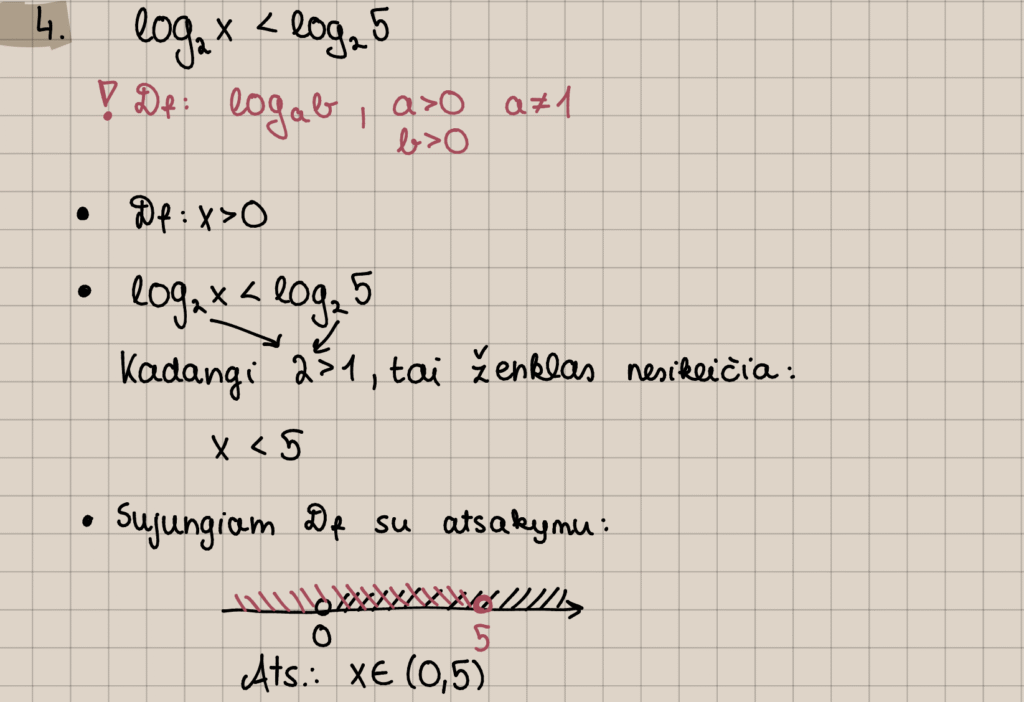 4. log₂x < log₂5
! Df: logₐb, a>0 a≠1
b>0
• Df: x>0
• log₂x < log₂5
Kadangi 2>1, tai ženklas nesikeičia:
x < 5
• Sujungiam Df su atsakymu:
0 5
Ats.: x∈(0,5)